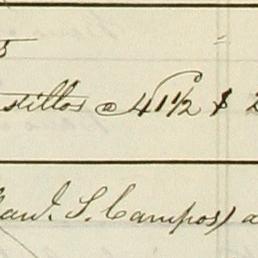 5
stillos @ 41 1/2 $ 2
S. Campos) a